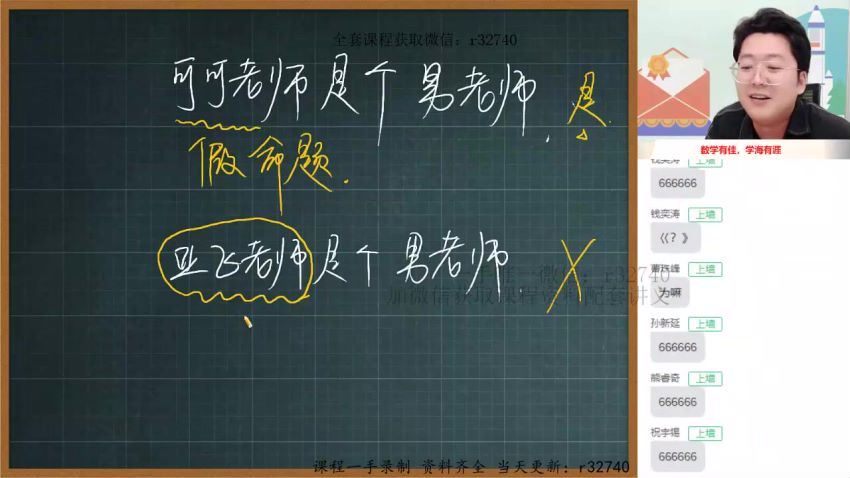 全套课程获取微信：r32740
可可老师是个男老师. 是
假命题.
亚飞老师是个男老师.
一手
微信：r32740
加微信获取课程资料配套讲义
课程一手录制 资料齐全 当天更新：r32740
数学有佳，学海有涯
钱奕涛 上墙
666666
钱奕涛 上墙
《？》
上墙
为嘛
孙新延 上墙
666666
熊睿奇 上墙
666666
祝宇锡 上墙
666666